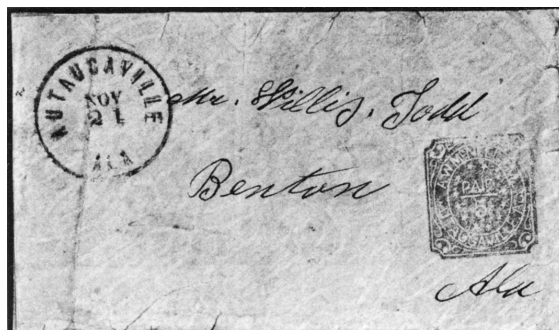 AUTAUGAVILLE
NOV
21
ALA
Mr. Willis. Todd
Benton
PAID
5
Ala